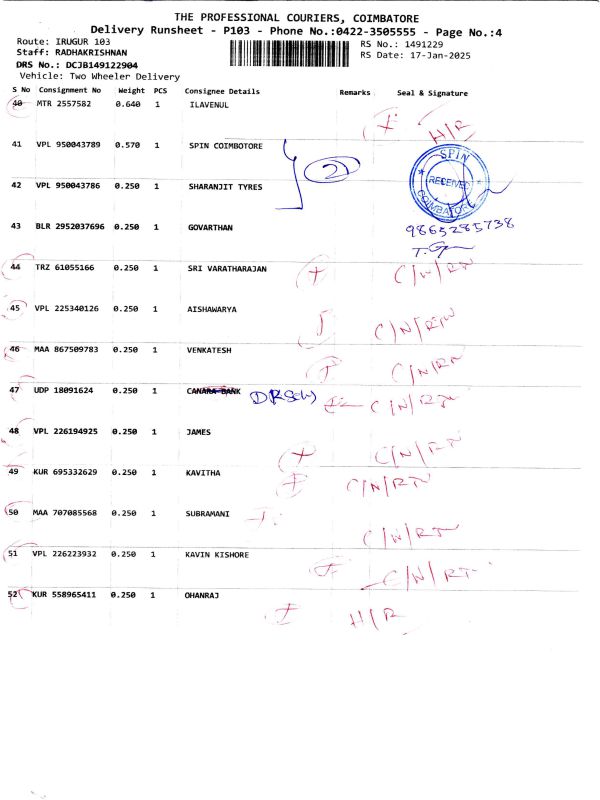 THE PROFESSIONAL COURIERS, COIMBATORE
Delivery Runsheet - P103 - Phone No.:0422-3505555 - Page No.:4
Route: IRUGUR 103
Staff: RADHAKRISHNAN
DRS No.: DCJB149122904
Vehicle: Two Wheeler Delivery
RS No.: 1491229
RS Date: 17-Jan-2025
S No Consignment No Weight PCS Consignee Details Remarks Seal & Signature
40 MTR 2557582 0.640 1 ILAVENUL
H/R
41 VPL 950043789 0.570 1 SPIN COIMBOTORE
2
SPIN RECEIVED COIMBATORE
42 VPL 950043786 0.250 1 SHARANJIT TYRES
43 BLR 2952037696 0.250 1 GOVARTHAN 9865285738
44 TRZ 61055166 0.250 1 SRI VARATHARAJAN C/N/RN
45 VPL 225340126 0.250 1 AISHAWARYA
C/N/RTN
46 MAA 867509783 0.250 1 VENKATESH
C/N/RN
47 UDP 18091624 0.250 1 CANARA BANK
C/N/RTN
48 VPL 226194925 0.250 1 JAMES
C/N/RTN
49 KUR 695332629 0.250 1 KAVITHA
C/N/RTN
50 MAA 707085568 0.250 1 SUBRAMANI
C/N/RTN
51 VPL 226223932 0.250 1 KAVIN KISHORE
C/N/RTN
52 KUR 558965411 0.250 1 OHANRAJ
H/R